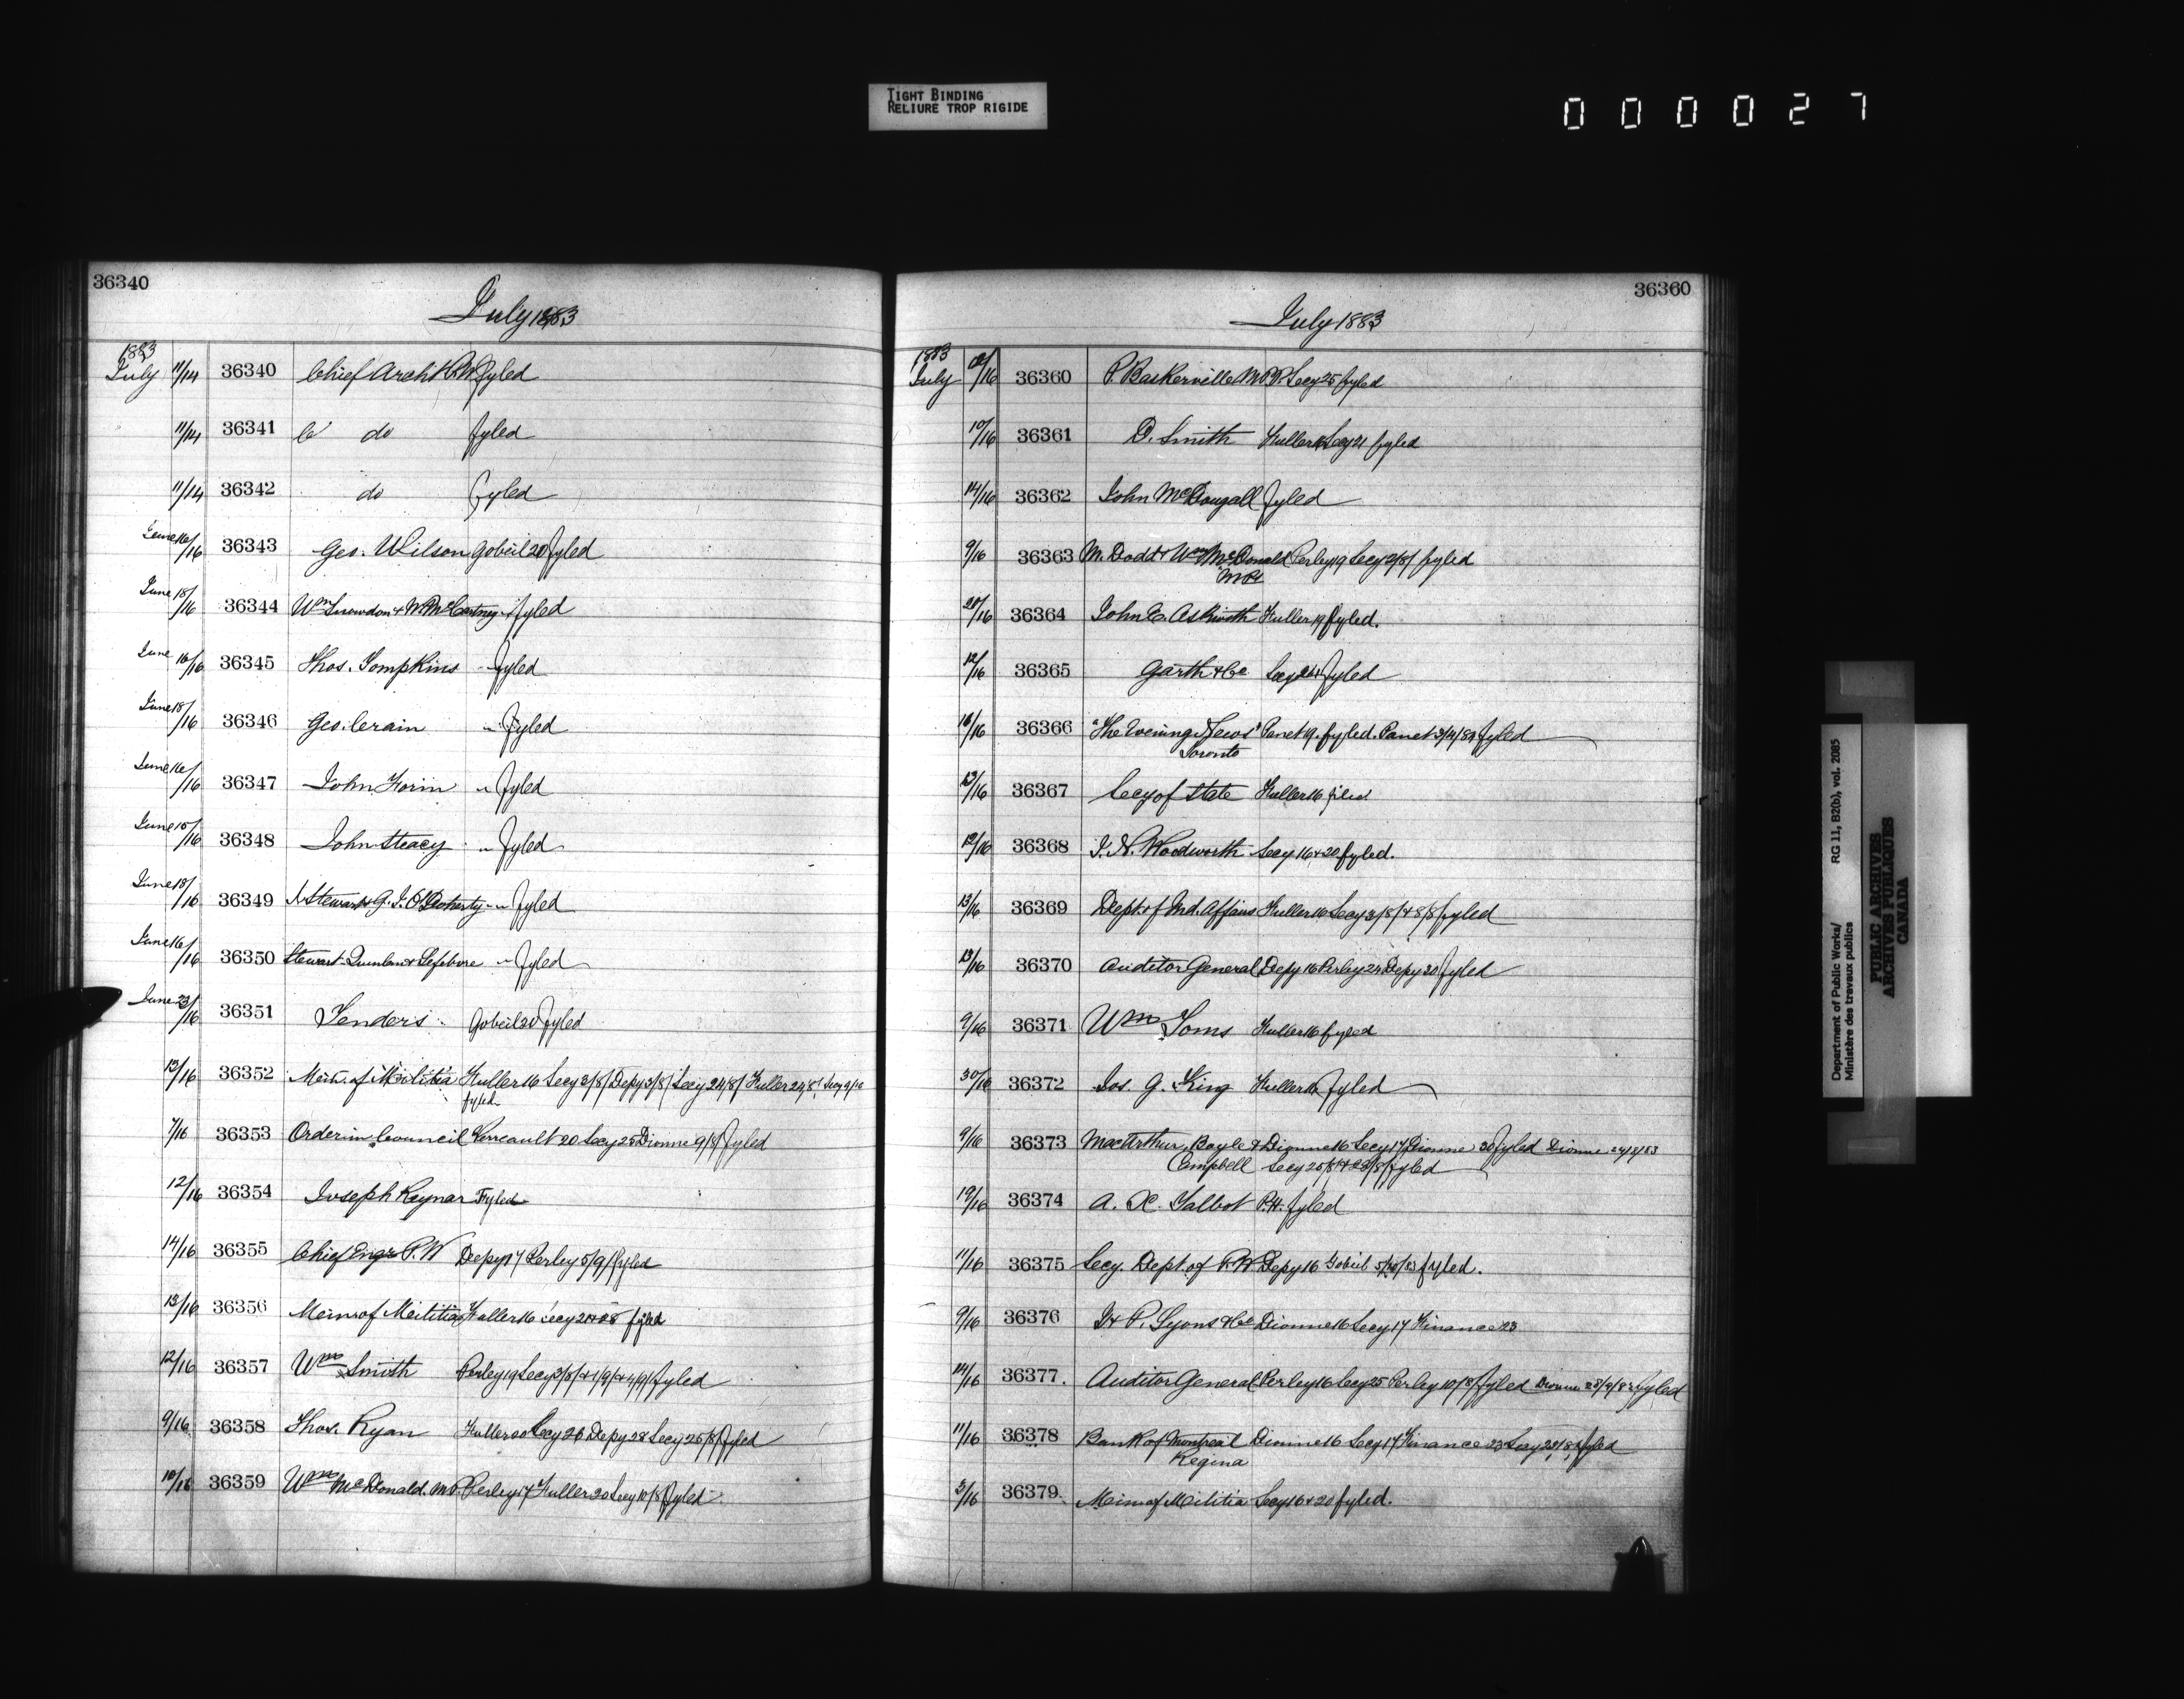 TIGHT BINDING
RELIURE TROP RIGIDE
000027
36340
July 1883
1883
July 11/14 36340 Chief Archt P.W. fyled
11/14 36341 do fyled
11/14 36342 do fyled
June 16/16 36343 Geo. Wilson Gobeil 20 fyled
June 18/16 36344 Wm Snowdon & W. McCartney " fyled
June 16/16 36345 Thos. Tompkins " fyled
June 18/16 36346 Geo. Crain " fyled
June 16/16 36347 John Forin " fyled
June 15/16 36348 John Steacy " fyled
June 18/16 36349 Stewart & G. J. O'Doherty " fyled
June 16/16 36350 Stewart & Lefebvre " fyled
June 23/16 36351 Tenders Gobeil 20 fyled
13/16 36352 Minr. of Militia Fuller 16 Secy 3/8/ Depy 3/8/ Secy 24/8/ Fuller 24/8/ Secy
fyled
7/16 36353 Order in Council Perreault 20 Secy 25 Dionne 9/8/ fyled
12/16 36354 Joseph Reynar Fyled
14/16 36355 Chief Engr P.W Depy 17 Perley 5/9/ fyled
13/16 36356 Minr of Militia Fuller 16 Secy fyled
12/16 36357 Wm Smith Perley 19 Secy 3/8/ & 1/9/ & 4/9/ fyled
9/16 36358 Thos. Ryan Fuller 20 Secy 26 Depy 28 Secy 25/8/ fyled
10/16 36359 Wm McDonald. M.P. Perley 17 Fuller 20 Secy 10/8 fyled
36360
July 1883
1883
July 12/16 36360 P. Baskerville M.P.P. Secy 25 fyled
10/16 36361 D. Smith Fuller 16 Secy 21 fyled
14/16 36362 John McDougall fyled
9/16 36363 M. Dodd & Wm McDonald Perley 19 Secy 2/8/ fyled
M.P.
20/16 36364 John E. Askwith Fuller 19 fyled.
12/16 36365 Garth & Co Secy fyled
16/16 36366 "The Evening News" Panet 19. fyled. Panet fyled
Toronto
13/16 36367 Secy of State Fuller 16 filed
12/16 36368 Woodworth Secy 16 & 20 fyled.
13/16 36369 Dept. of Ind. Affairs Fuller 16 Secy 3/8/ & 8/8/ fyled
13/16 36370 Auditor General Depy 16 Perley 24 Depy 30 fyled
9/16 36371 Wm Toms Fuller 16 fyled
30/16 36372 Jos. G. King Fuller 16 fyled
9/16 36373 MacArthur, Boyle & Dionne 16 Secy 17 Dionne 30 fyled Dionne 24/8/83
Campbell Secy 25/8/ & 28/8/ fyled
19/16 36374 A. X. Talbot P.H. fyled
11/16 36375 Secy. Dept. of P.W. Depy 16 Gobeil 5/10/83 fyled.
9/16 36376 P. Lyons & Co Dionne 16 Secy 17 Finance 23
14/16 36377. Auditor General Perley 16 Secy 25 Perley 10/8/ fyled Dionne fyled
11/16 36378 Bank of Montreal Dionne 16 Secy 17 Finance 23 Secy 28/8/ fyled
Regina
3/16 36379 Minr of Militia Secy 16 & 20 fyled.
Department of Public Works/
Ministère des travaux publics
RG 11, B2(b), vol. 2085
PUBLIC ARCHIVES
ARCHIVES PUBLIQUES
CANADA